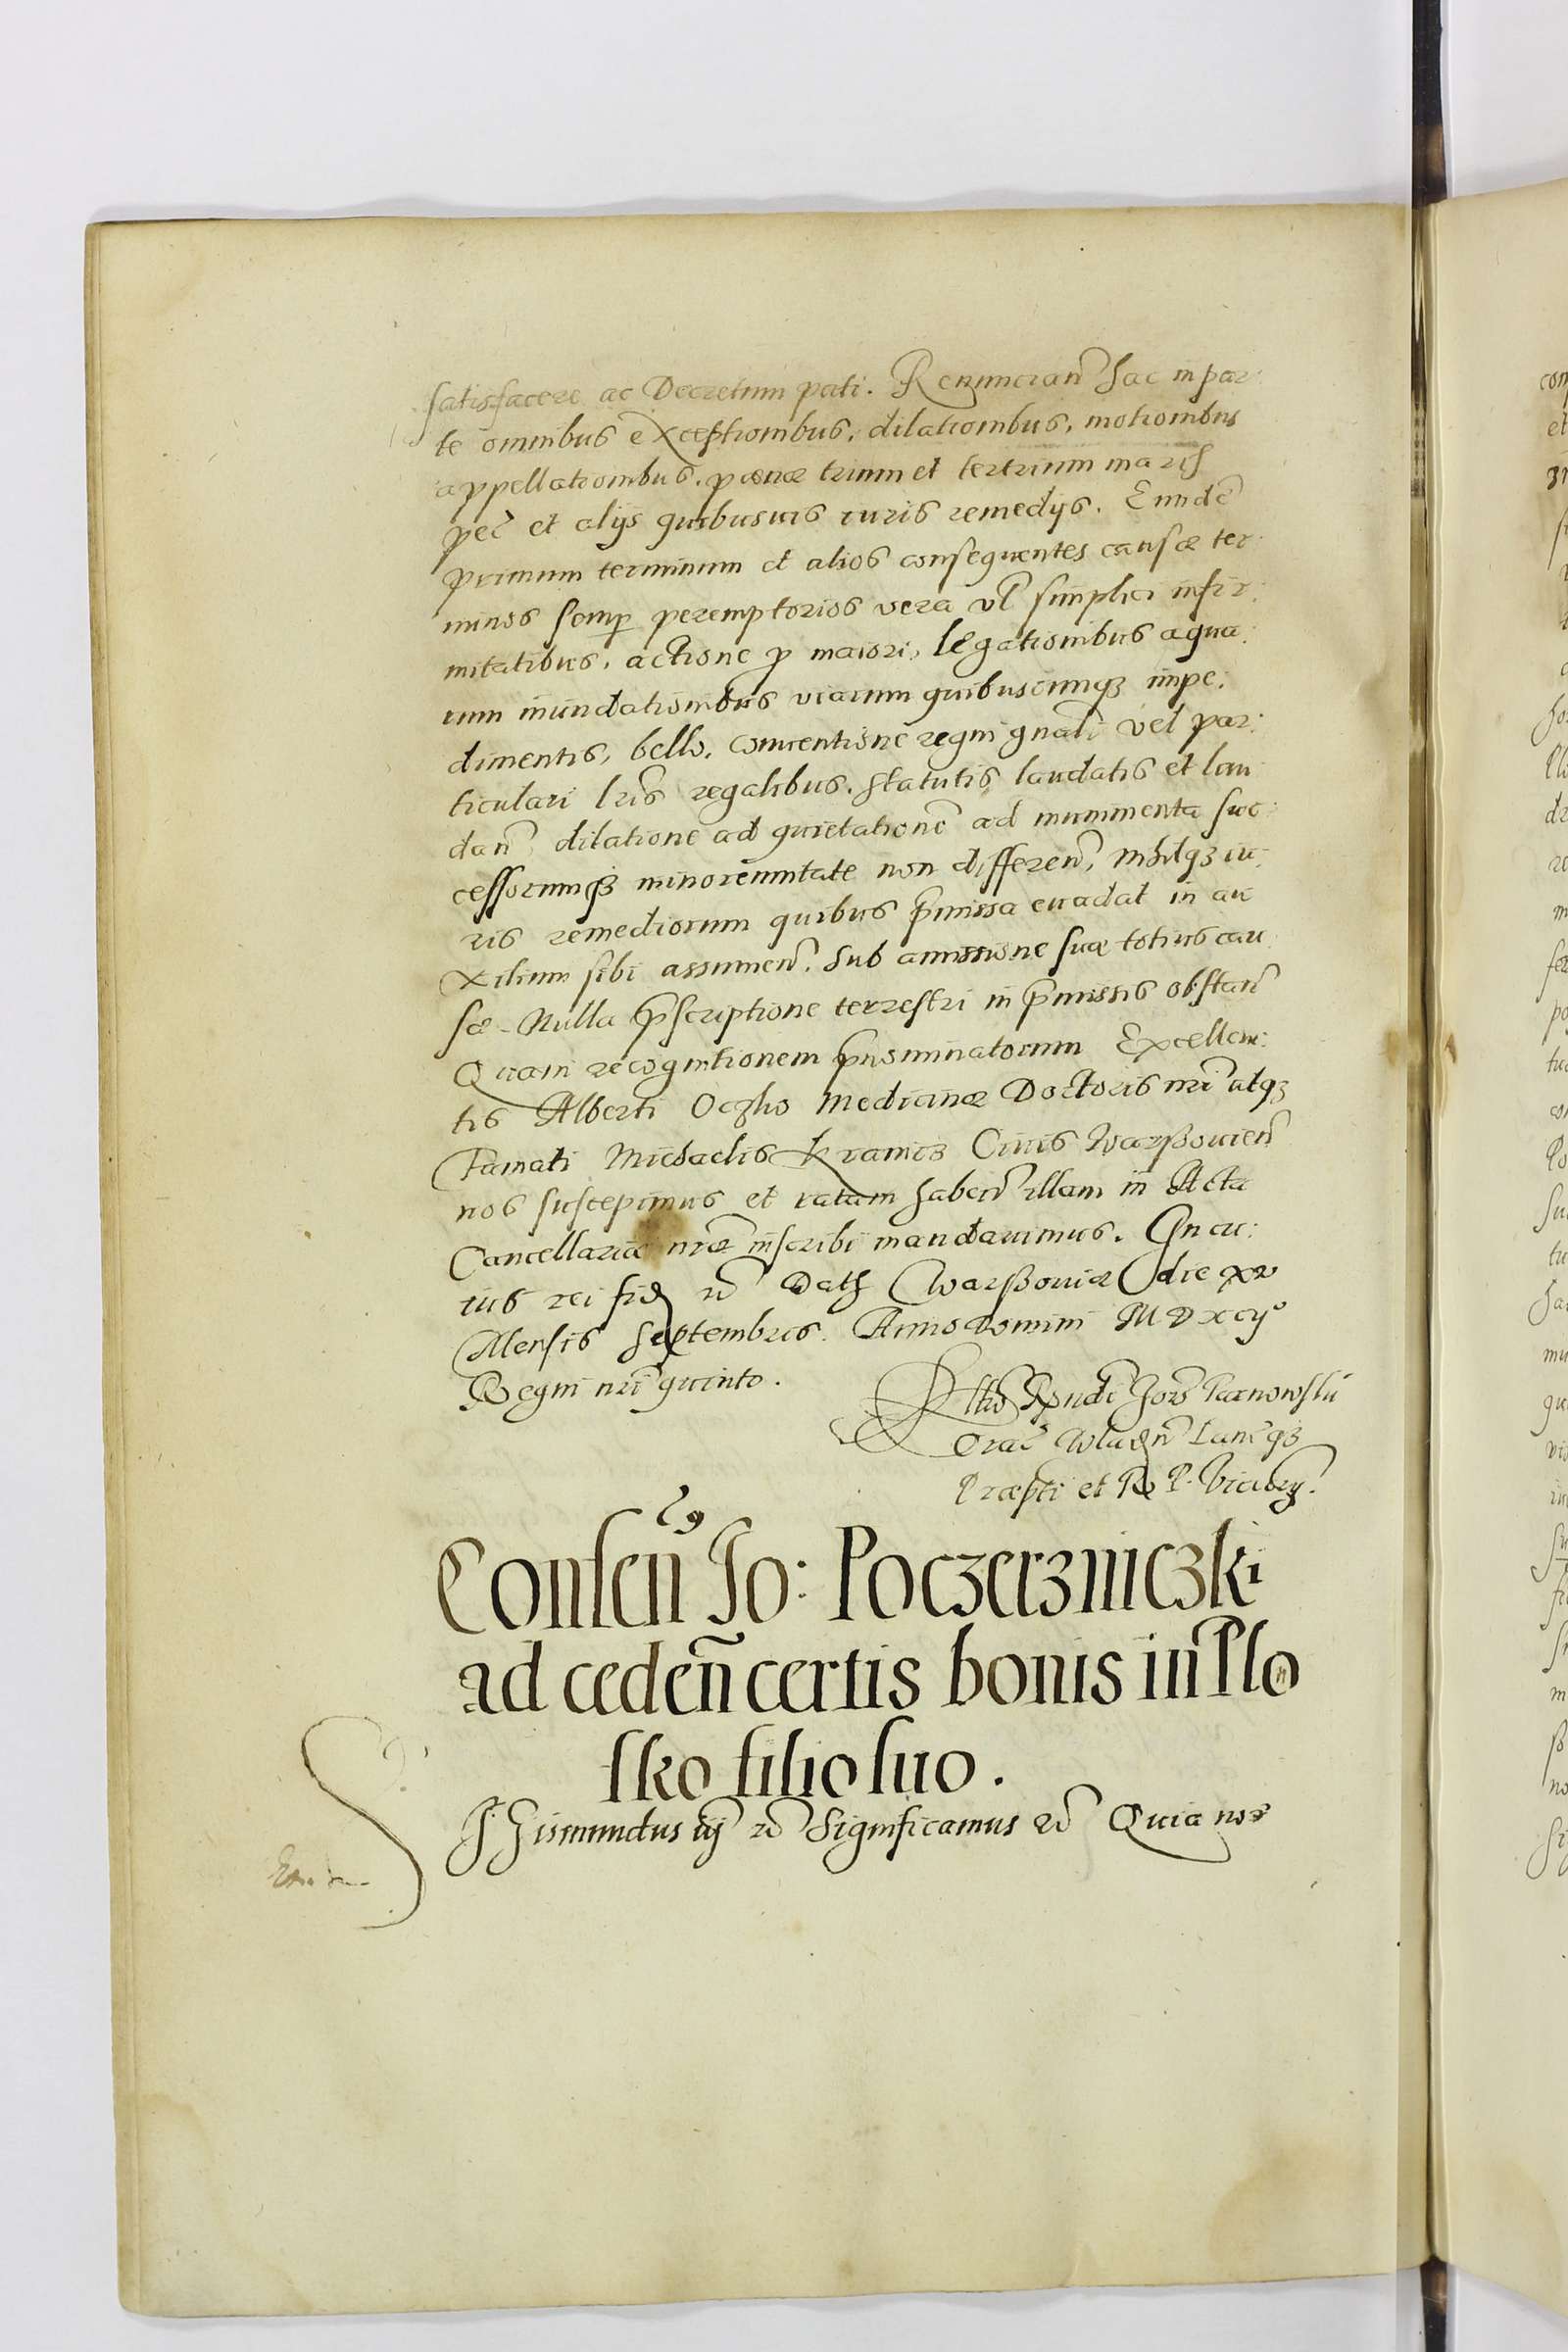 satisfacere ac Decretum pati. Renuncian̄ hac in par
te omnibus exceptionibus, dilationibus, motionibus
appellationibus, pœnæ trium et tertrium marcȝ
pec̄ et alijs quibusuis iuris remedijs. Eundē
primum terminum et alios consequentes causæ ter
minos semp peremptorios vera vl̄ simplici infir
mitatibus, actione p maiori, legationibus aqua
rum inundationibus viarum quibuscunqȝ impe
dimentis, bello, conuentione regni gnali vel par
ticulari lris regalibus, statutis laudatis et lau
dan̄ dilatione ad quietationē ad munimenta suc
cessorumqȝ minorennitate non differen̄, nihilqȝ iu
ris remediorum quibus p̄missa euadat in au
xilium sibi assumen̄. Sub amissione suæ totius cau
sæ. Nulla p̄scriptione terrestri in p̄missis obstan̄
Quam recognitionem p̄nominatorum Excellen
tis Alberti Oczko Medicinæ Doctoris nri atqȝ
Famati Michaelis Kramcz Ciuis Warßouien̄
nos suscepimus et ratam haben̄ illam in Acta
Cancellariæ nræ inscribi mandauimus. In cu
ius rei fid Dat Warßouiæ die xv
Mensis Septembris. Anno Domini M D xcij°
Regni nri quinto.
Rndi Tarnowski
Wlad Lanc qȝ
Præpti et R. P. Vice
Consen̄ Jo: Poczerzniczki
ad ceden̄ certis bonis in Plo
sko filio suo.
Sigismundus iij Significamus Quia nos